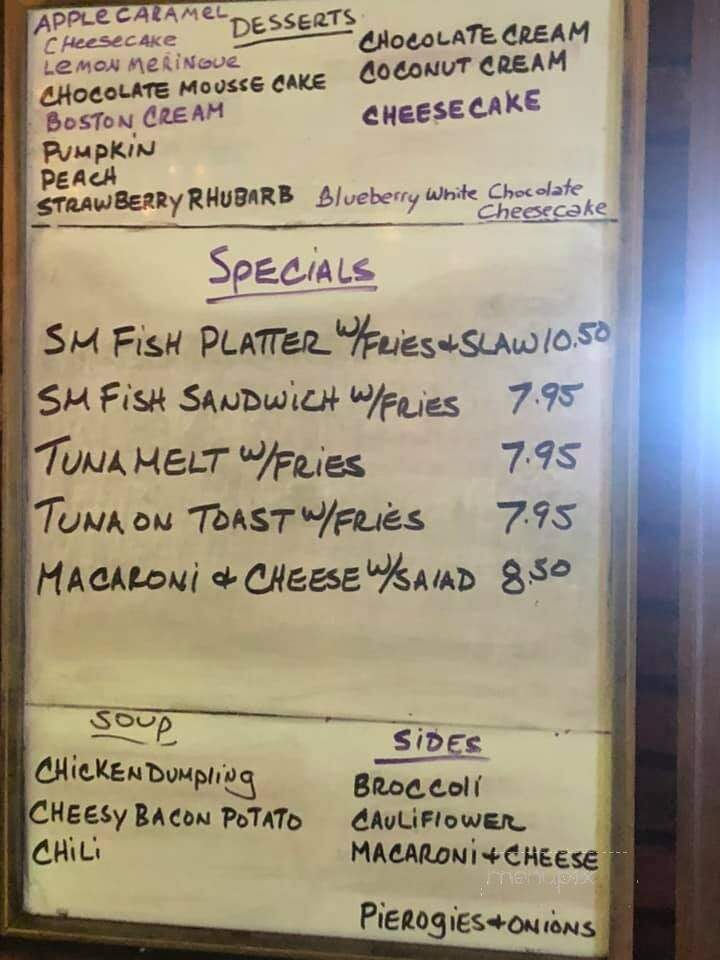 DESSERTS
APPLE CARAMEL
CHeeseCAKE
LEMON MERINGUE
CHOCOLATE MOUSSE CAKE
BOSTON CREAM
PUMPKIN
PEACH
STRAWBERRY RHUBARB
CHOCOLATE CREAM
COCONUT CREAM
CHEESECAKE
Blueberry White Chocolate
Cheesecake
SPECIALS
SM FISH PLATTER W/FRIES & SLAW 10.50
SM FISH SANDWICH W/FRIES 7.95
TUNA MELT W/FRIES 7.95
TUNA ON TOAST W/FRIES 7.95
MACARONI & CHEESE W/SALAD 8.50
SOUP
CHICKEN DUMPLING
CHEESY BACON POTATO
CHILI
SIDES
BROCCOLI
CAULIFLOWER
MACARONI + CHEESE
PIEROGIES + ONIONS
menupix